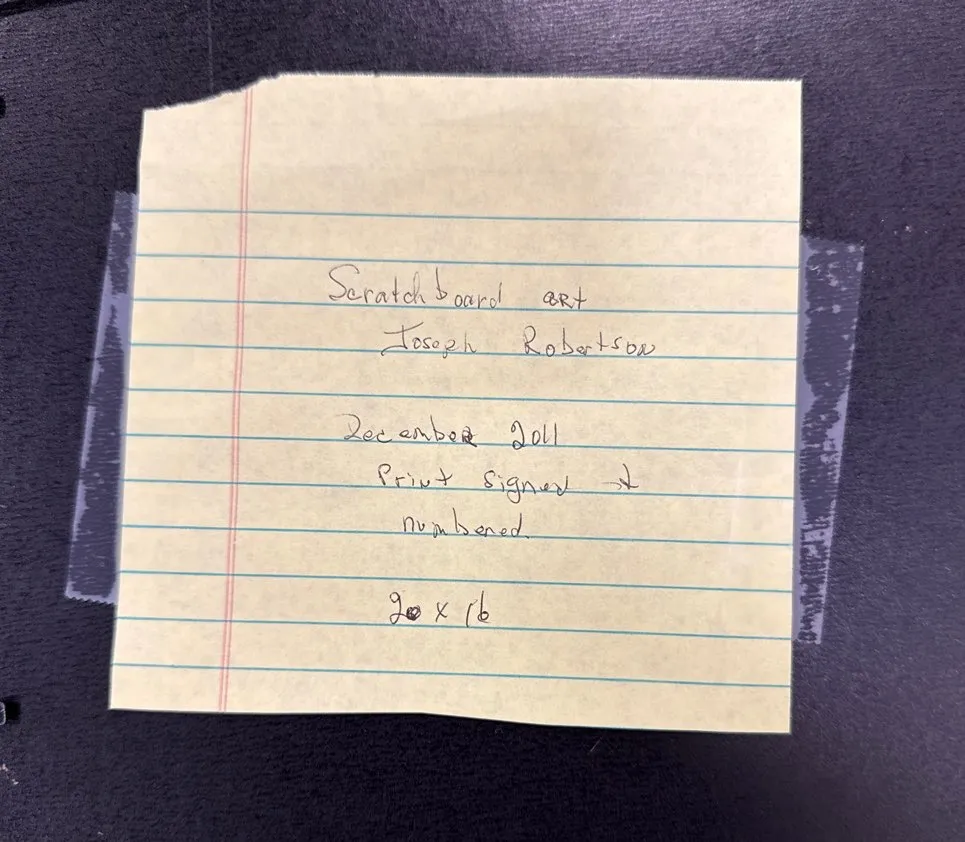 Scratchboard art
Joseph Robertson
December 2011
Print signed +
numbered.
20 x 16